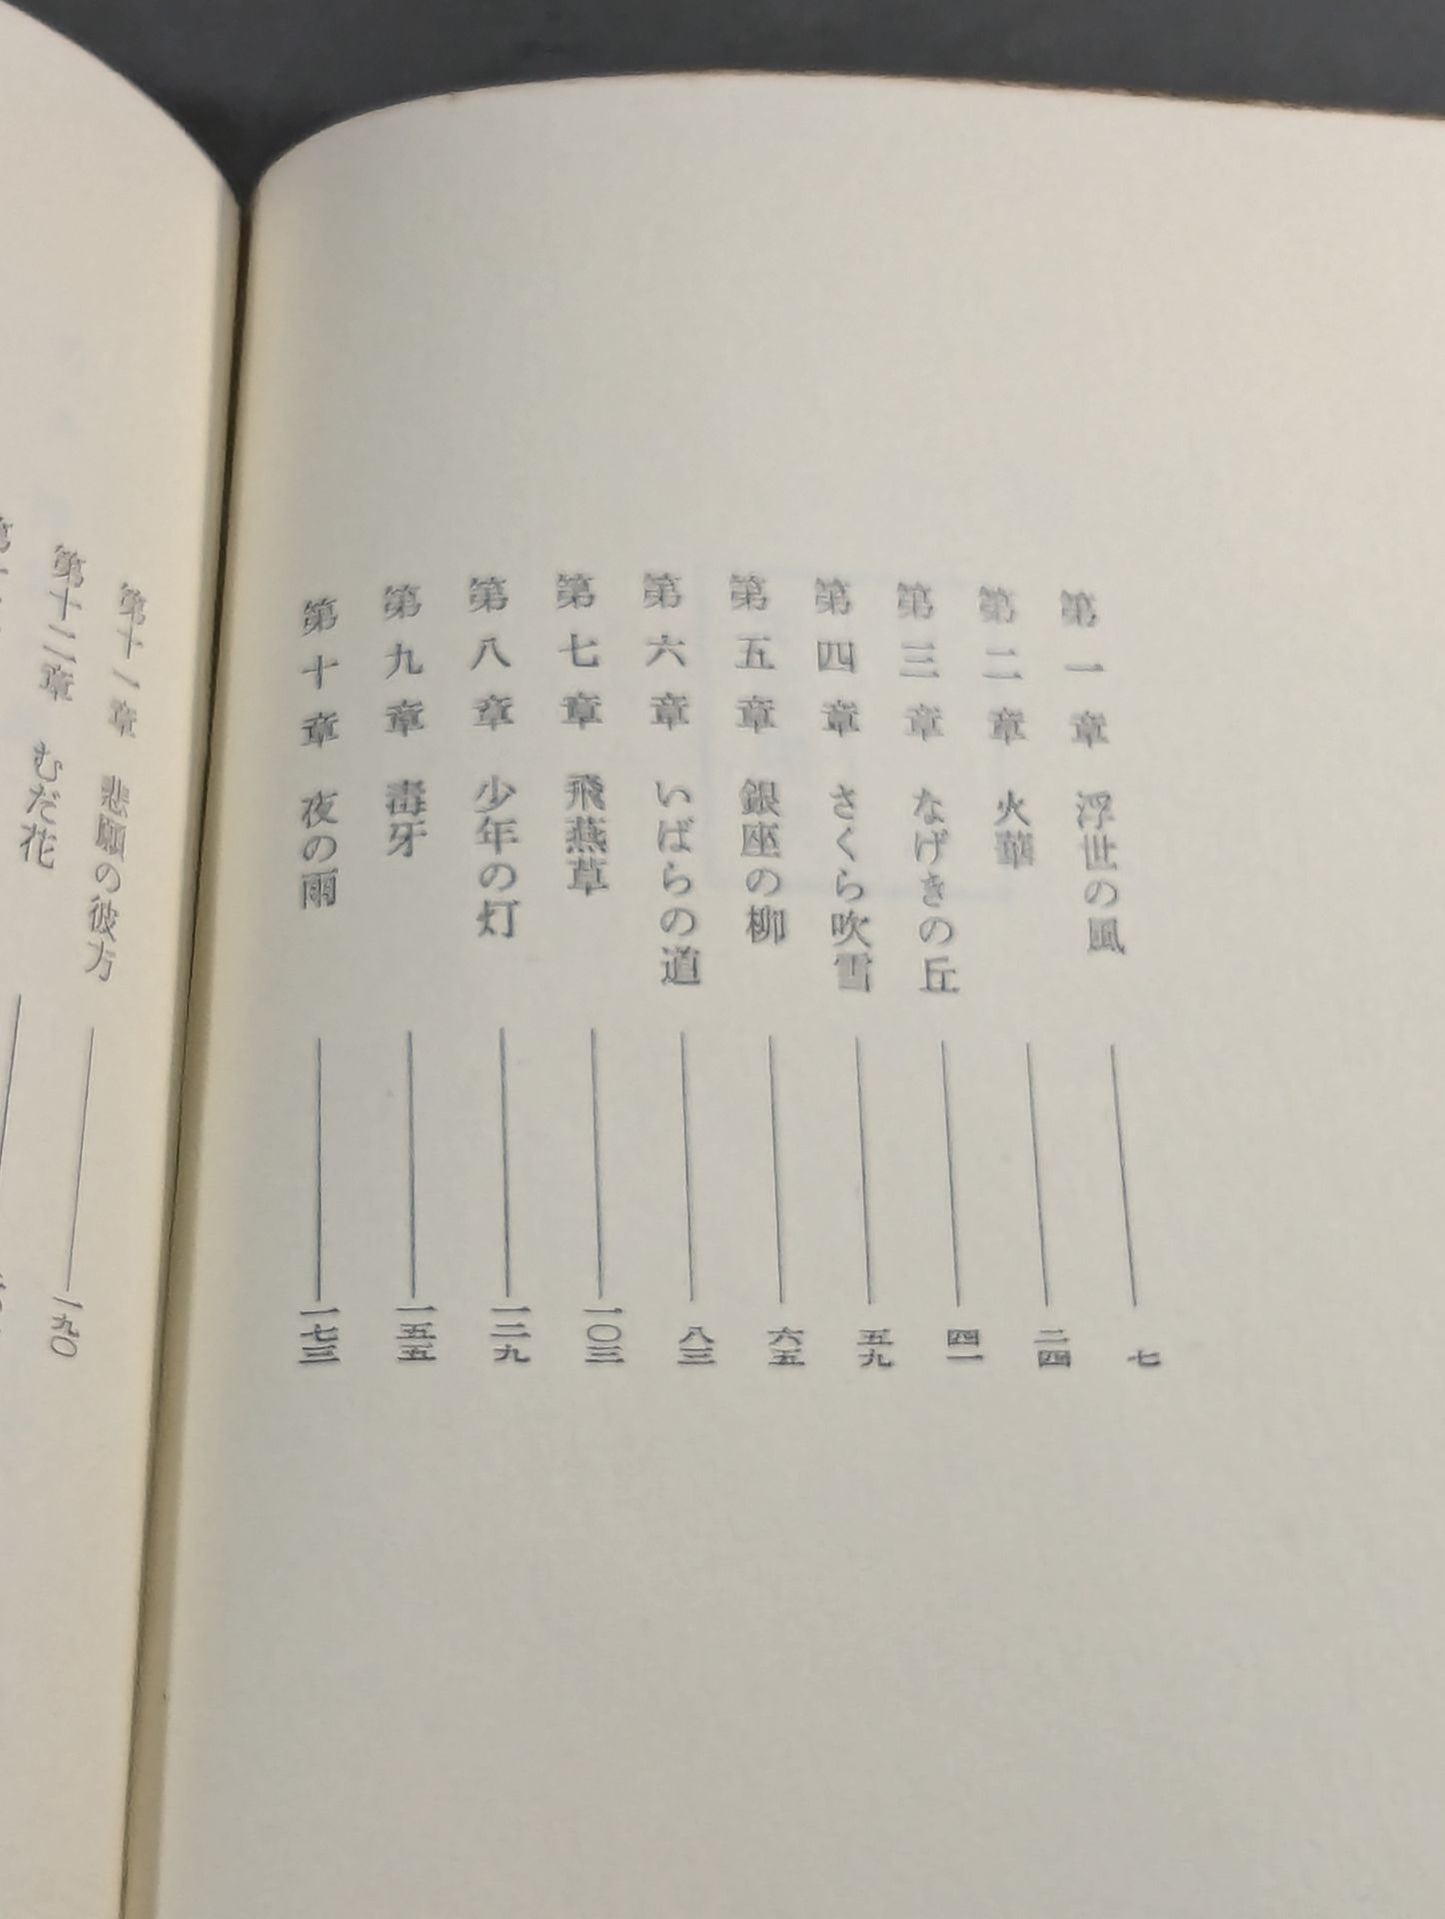 第一章 浮世の風 七
第二章 火華 二四
第三章 なげきの丘 四一
第四章 さくら吹雪 五九
第五章 銀座の柳 六五
第六章 いばらの道 八三
第七章 飛燕草 一〇三
第八章 少年の灯 一二九
第九章 毒牙 一五五
第十章 夜の雨 一七三
第十一章 悲願の彼方 一九〇
第十二章 むだ花